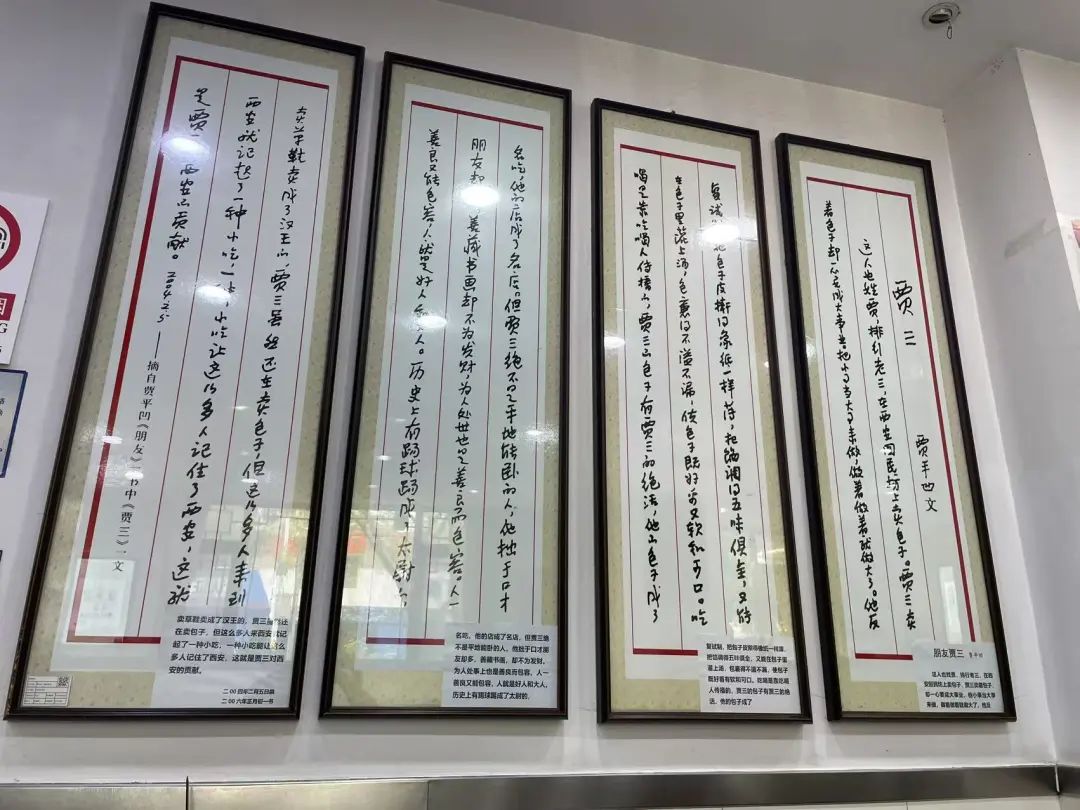 贾三
贾平凹文
这人也姓贾，排行老三，在西安回民坊上卖包子。贾三卖
着包子却一心要成大事，把小事当大事来做，做着做着就做大了。他反
朋友贾三
这人也姓贾，排行老三，在西
安回民坊上卖包子，贾三卖着包子
却一心要成大事业，把小事当大事
来做，做着做着就做大了，他反
复试制，把包子皮擀得像纸一样薄，把馅调得五味俱全，又能
在包子里蓄上汤，包裹得不溢不漏，使包子既好看又软和可口。吃
喝是靠吃喝人传播的，贾三的包子有贾三的绝活，他的包子成了
复试制，把包子皮擀得像纸一样薄，
把馅调得五味俱全，又能在包子里
蓄上汤，包裹得不溢不漏，使包子
既好看有软和可口。吃喝是靠吃喝
人传播的，贾三的包子有贾三的绝
活，他的包子成了
名吃，他的店成了名店。但贾三绝不是平地能卧的人，他拙于口才
朋友却多，善藏书画却不为发财，为人处世也是善良而包容。人一
善良又能包容，人就是好人和大人。历史上有踢球踢成了太尉的，
名吃，他的店成了名店，但贾三绝
不是平地能卧的人，他拙于口才朋
友却多，善藏书画，却不为发财，
为人处事上也是善良而包容，人一
善良又能包容，人就是好人和大人，
历史上有踢球踢成了太尉的，
卖草鞋卖成了汉王的，贾三虽然还在卖包子，但这么多人来到
西安就记起了一种小吃，一种小吃让这么多人记住了西安，这就
是贾三对西安的贡献。2004.2.5
——摘自贾平凹《朋友》一书中《贾三》一文
卖草鞋卖成了汉王的，贾三虽然还
在卖包子，但这么多人来西安就记
起了一种小吃，一种小吃能让这么
多人记住了西安，这就是贾三对西
安的贡献。
二00四年二月五日晨
二00六年正月初一书